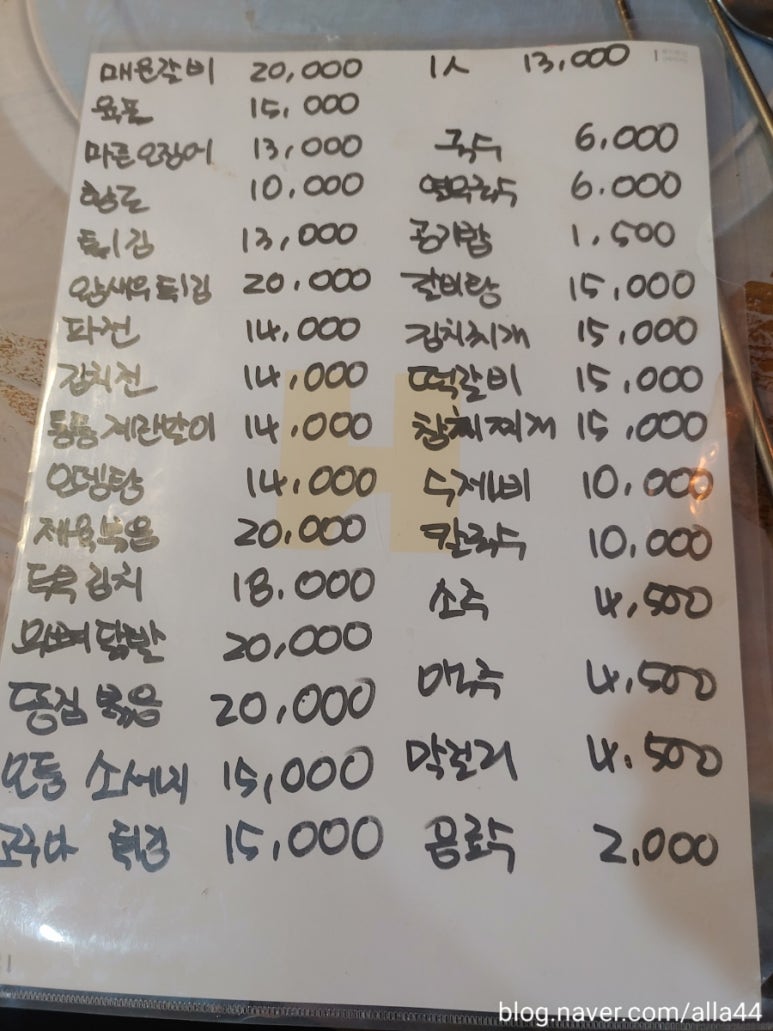 매운갈비 20,000 1人 13,000
육포 15,000
마른오징어 13,000 국수 6,000
황도 10,000 열무국수 6.000
튀김 13,000 공기밥 1,500
왕새우튀김 20.000 갈비탕 15,000
파전 14,000 김치찌개 15,000
김치전 14,000 떡갈비 15,000
통통계란말이 14,000 참치찌개 15,000
오뎅탕 14.000 수제비 10.000
제육볶음 20,000 칼국수 10,000
두욱김치 18.000 소주 4,500
무뼈닭발 20,000 맥주 4,500
똥집볶음 20,000 막걸리 4.500
모듬 소세지 15,000
고구마 튀김 15,000 음료수 2,000
blog.naver.com/alla44